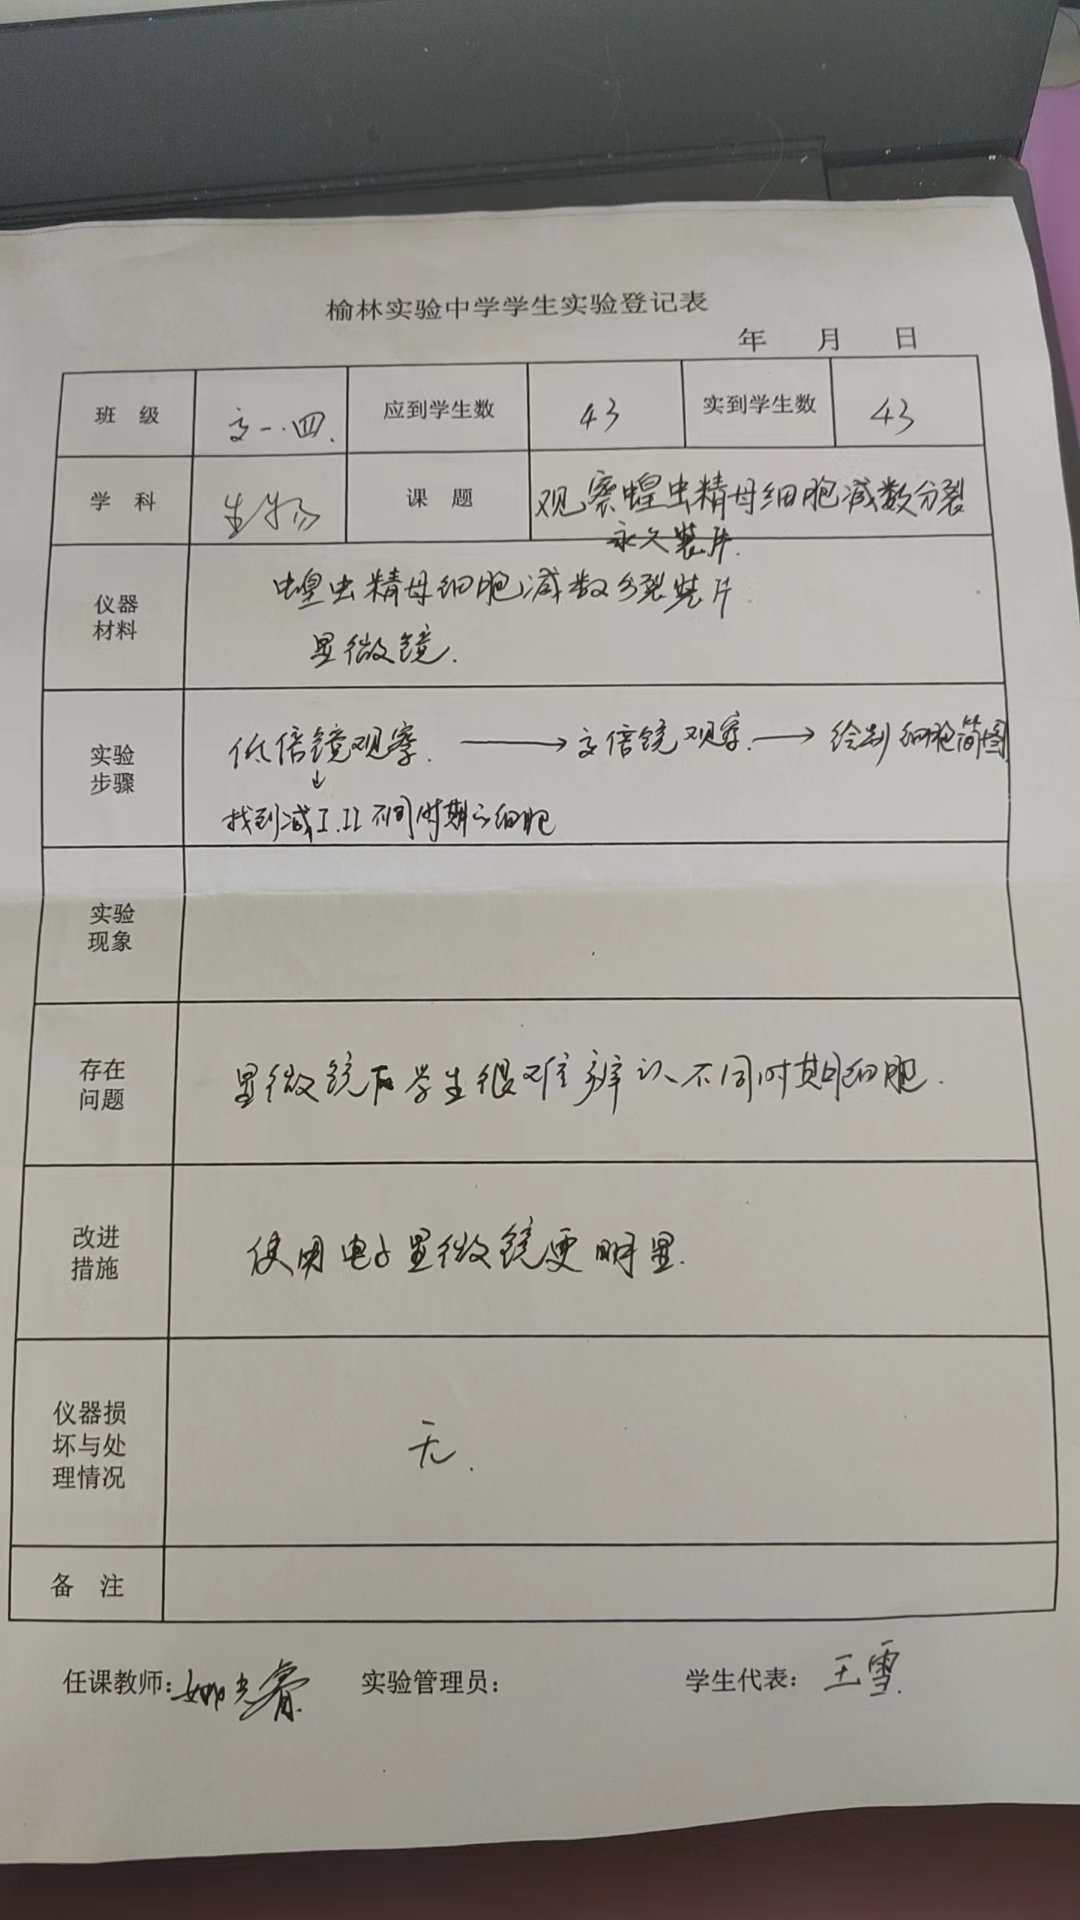 榆林实验中学学生实验登记表
年 月 日
班 级 高一.四. 应到学生数 43 实到学生数 43
学 科 生物 课 题 观察蝗虫精母细胞减数分裂
永久装片.
仪器
材料
蝗虫精母细胞减数分裂装片.
显微镜.
实验
步骤
低倍镜观察. → 高倍镜观察. → 绘制细胞简图
↓
找到减I.II不同时期的细胞
实验
现象
存在
问题
显微镜下学生很难辨认不同时期细胞.
改进
措施
使用电子显微镜更明显.
仪器损
坏与处
理情况
无.
备 注
任课教师: 实验管理员: 学生代表: 王雪.